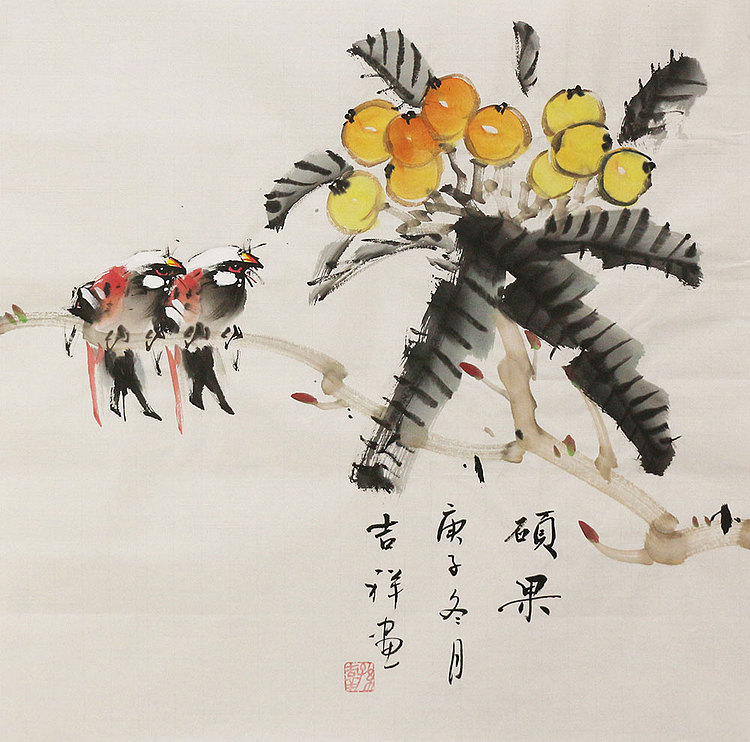 碩果
庚子冬月
吉祥畫